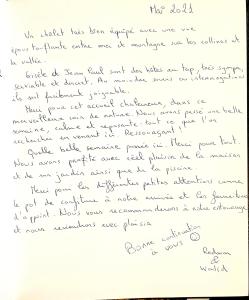 Mai 2021
Un chalet très bien équipé avec une vue
époustouflante entre mer et montagne sur les collines et
la vallée.
Gisèle et Jean Paul sont des hôtes au top, très sympa,
serviable et discret. Au moindre soucis ou interrogations
ils sont facilement joignable.
Merci pour cet accueil chaleureux, dans ce
merveilleux coin de nature. Nous avons passé une belle
semaine, calme et reposante, tout ce que l'on
recherchait en venant ici. Ressourçant !
Quelle belle semaine passée ici. Merci pour tout.
Nous avons profité avec réel plaisir de la maison
et de son jardin ainsi que de la piscine.
Merci pour les différentes petites attentions comme
le pot de confiture à notre arrivée et les
d'appoint. Nous vous recommanderons à notre entourage
et nous reviendrons avec plaisir.
Bonne continuation
à vous
&